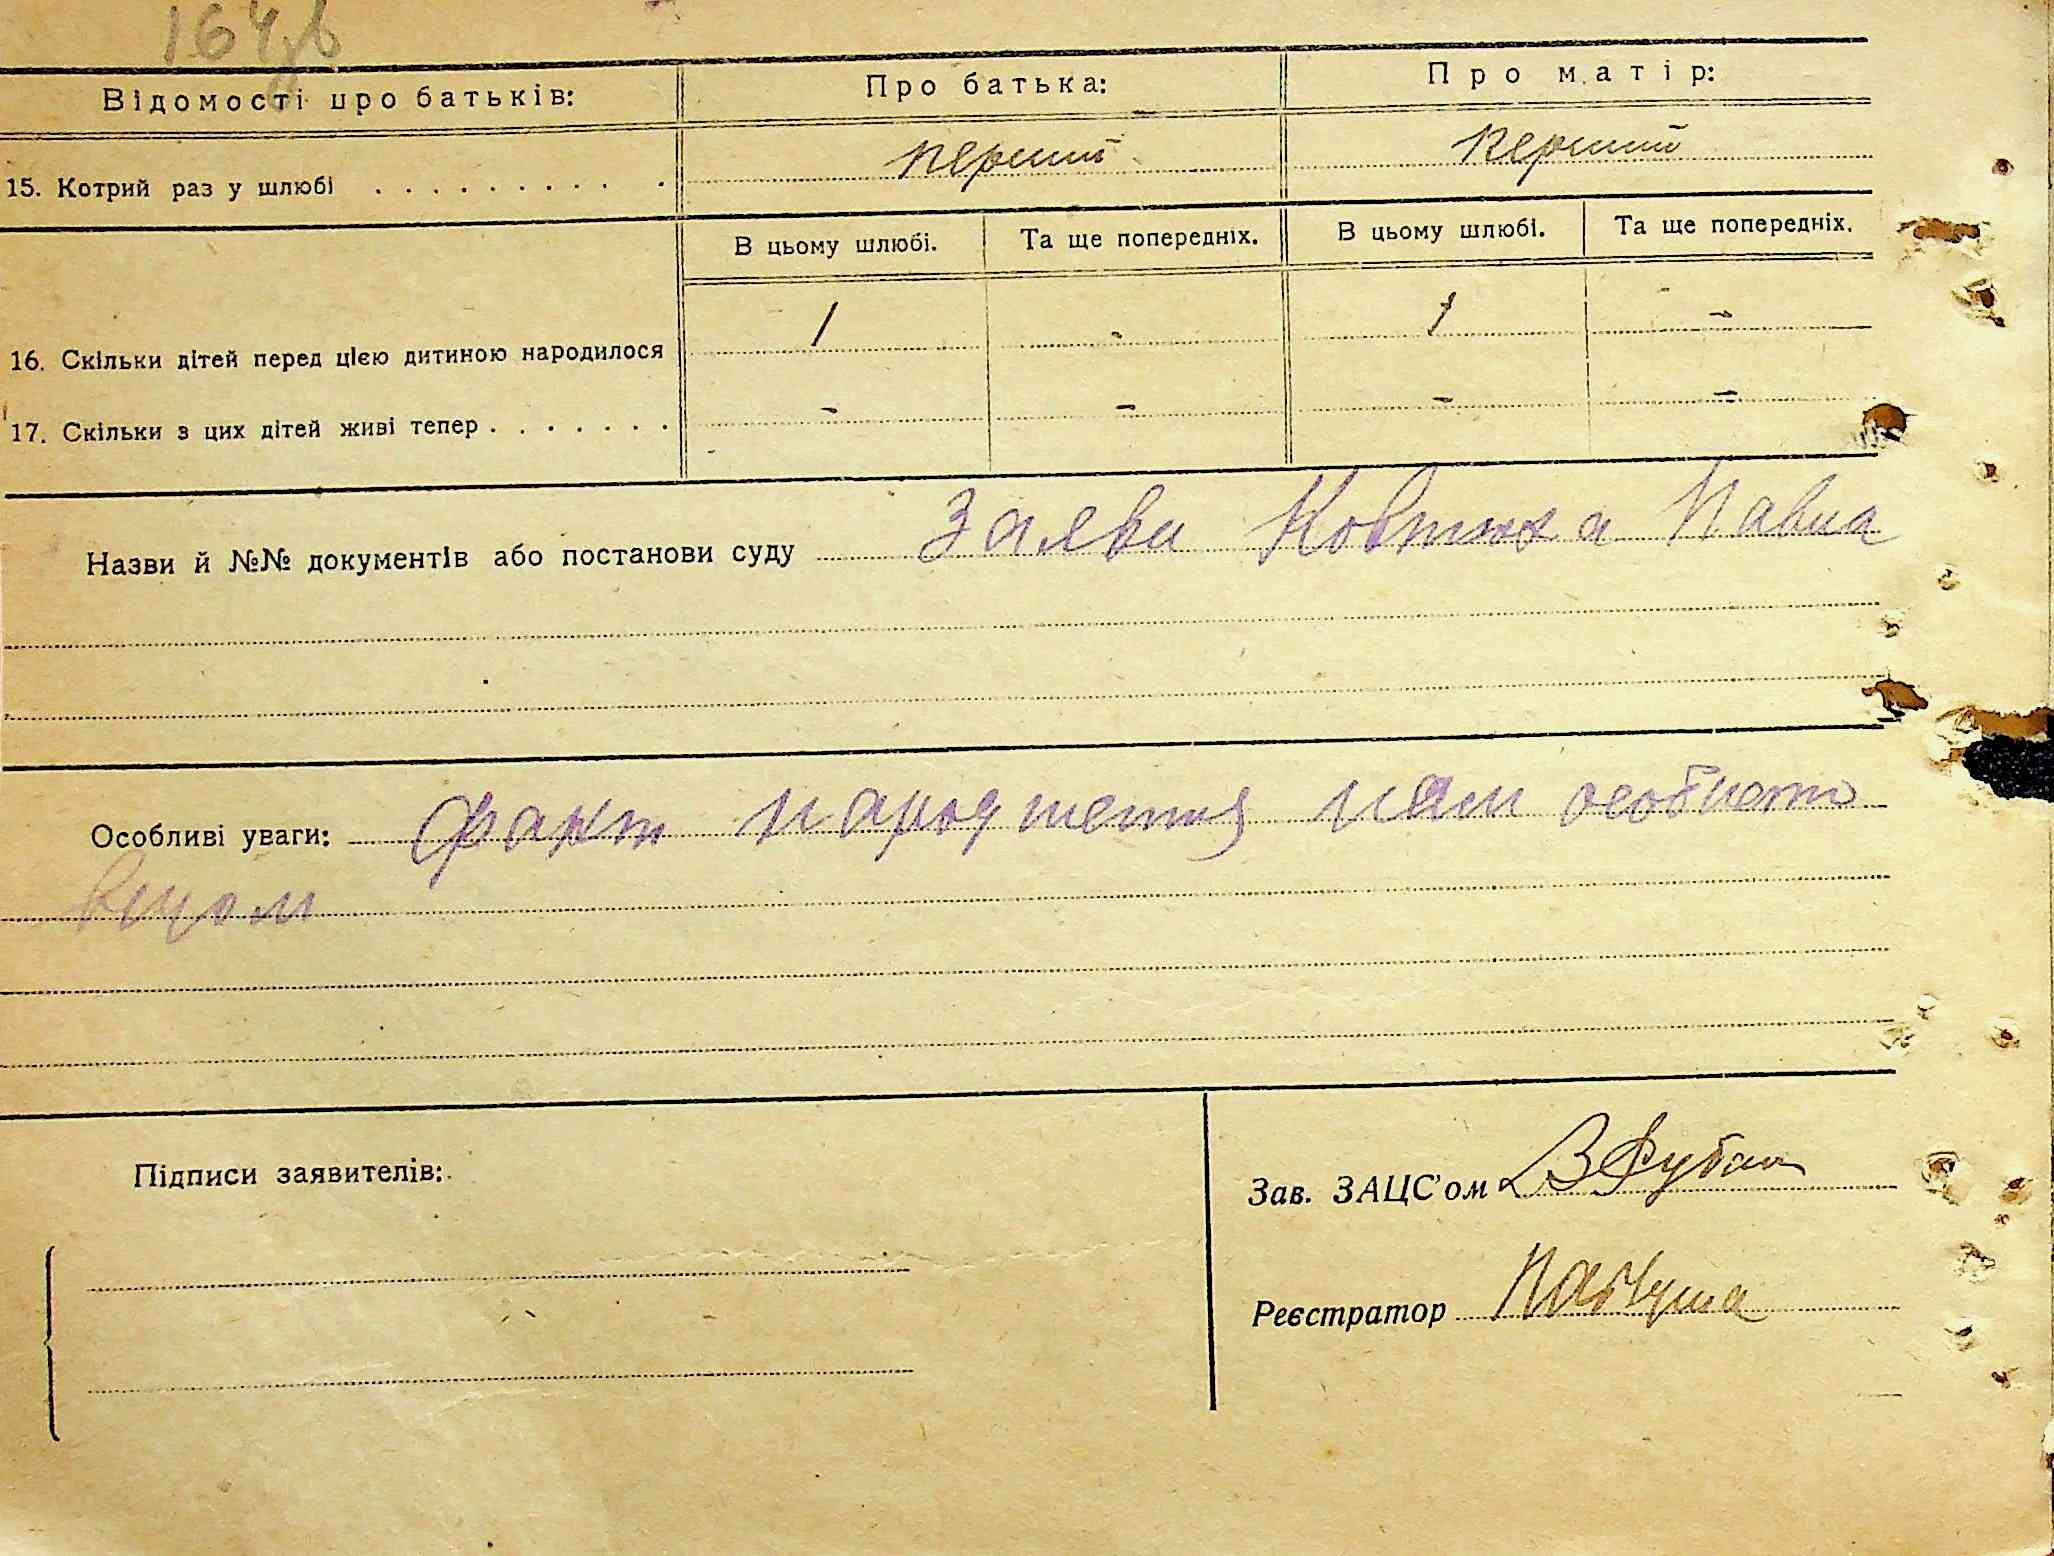 164зв
Відомості про батьків: Про батька: Про матір:
15. Котрий раз у шлюбі . . . . . . . . . . перший перший
В цьому шлюбі. Та ще попередніх. В цьому шлюбі. Та ще попередніх.
16. Скільки дітей перед цією дитиною народилося 1 - 1 -
17. Скільки з цих дітей живі тепер . . . . . . . - - - -
Назви й №№ документів або постанови суду Заява Ковтюха Павла
Особливі уваги: факт народження нам особисто
Підписи заявителів:
Зав. ЗАЦС'ом В Рубан
Реєстратор